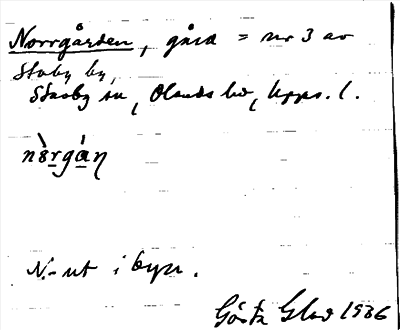 Norrgården, gård = nr 3 av
Staby by,
Stavby sn, Olands hd, Upps. l.
nòrgán
N:- ut i byn.
Gösta Glad 1936